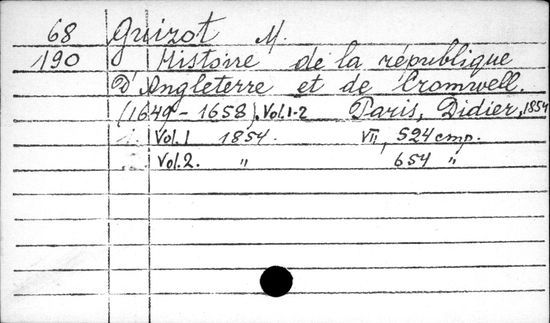 68 Guizot M.
190 Histoire de la république
D'Angleterre et de Cromwell.
(1649-1658). Vol. 1-2 Paris, Didier, 1854
1. Vol. 1 1854. VII, 524 стр.
2. Vol. 2. " 654 "